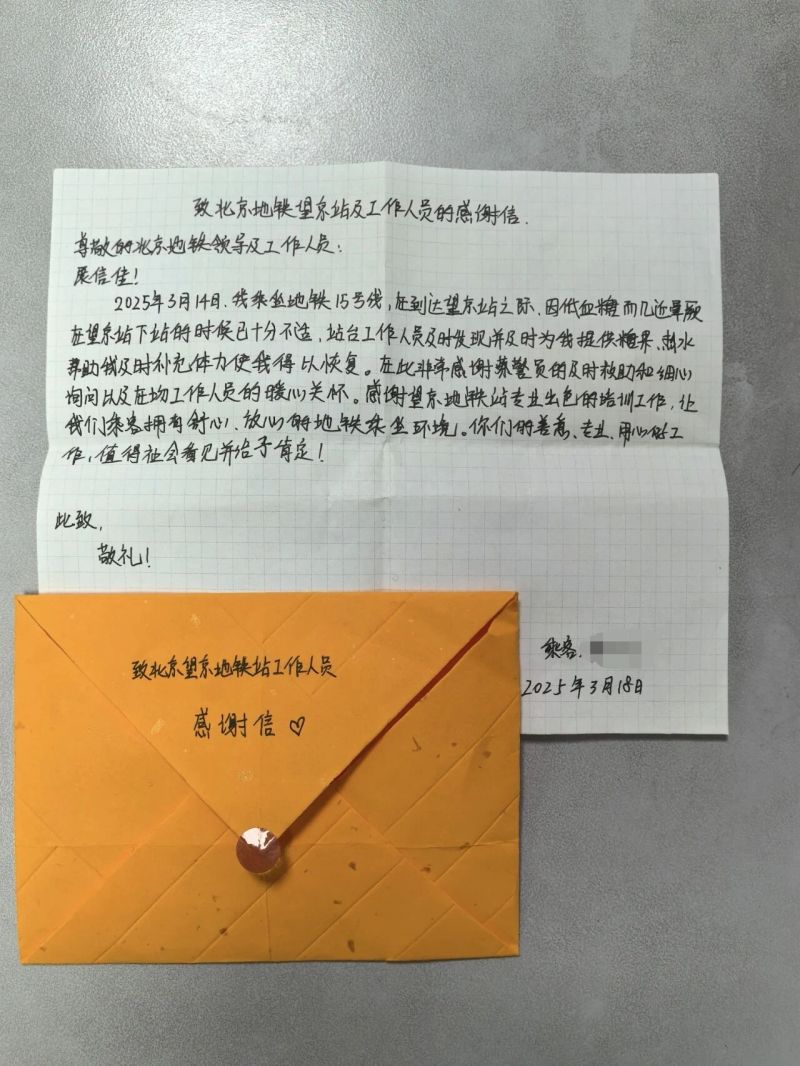 致北京地铁望京站及工作人员的感谢信.
尊敬的北京地铁领导及工作人员:
展信佳!
2025年3月14日,我乘坐地铁15号线,在到达望京站之际,因低血糖而几近晕厥
在望京站下站的时候已十分不适,站台工作人员及时发现并及时为我提供糖果、热水
帮助我及时补充体力使我得以恢复。在此非常感谢乘警员的及时救助和细心
询问以及在场工作人员的暖心关怀。感谢望京地铁站专业出色的培训工作,让
我们乘客拥有舒心、放心的地铁乘坐环境。你们的善意、专业、用心的工
作,值得社会看见并给予肯定!
此致,
敬礼!
乘客.
2025年3月18日
致北京望京地铁站工作人员
感谢信 ♡